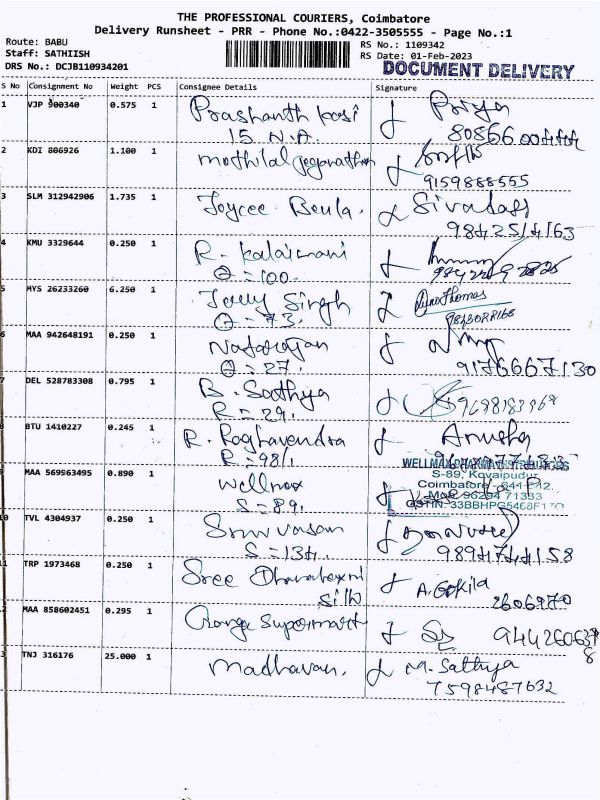 THE PROFESSIONAL COURIERS, Coimbatore
Delivery Runsheet - PRR - Phone No.:0422-3505555 - Page No.:1
Route: BABU
RS No.: 1109342
Staff: SATHIISH
RS Date: 01-Feb-2023
DRS No.: DCJB110934201
DOCUMENT DELIVERY
S No Consignment No Weight PCS Consignee Details Signature
1 VJP 900340 0.575 1 Prashanth Priya
15 N.A. 80866
2 KDI 806926 1.100 1 mothilal jeganathan
9159888555
3 SLM 312942906 1.735 1 Joycee Beula. Sivadass
4 KMU 3329644 0.250 1 R. Kalaimani
Q = 100.
5 MYS 26233260 6.250 1 Jolly Singh Thomas
Q = 73.
6 MAA 942648191 0.250 1 Natarajan
Q = 27. 9176667130
7 DEL 528783308 0.795 1 B. Sathya
R = 29.
8 BTU 1410227 0.245 1 R. Raghavendra Anusha
R = 98/1
9 MAA 569963495 0.890 1 Wellmax
S = 89.
S-89, Kovaipudur
Coimbatore - 641 042.
10 TVL 4304937 0.250 1 Srinivasan
S = 134. 9894744158
11 TRP 1973468 0.250 1 Sree Dhanalaxmi A. Gokila
Silk 2606970
12 MAA 858602451 0.295 1 Supermart
13 TNJ 316176 25.000 1 Madhavan. M. Sathya
7598487632